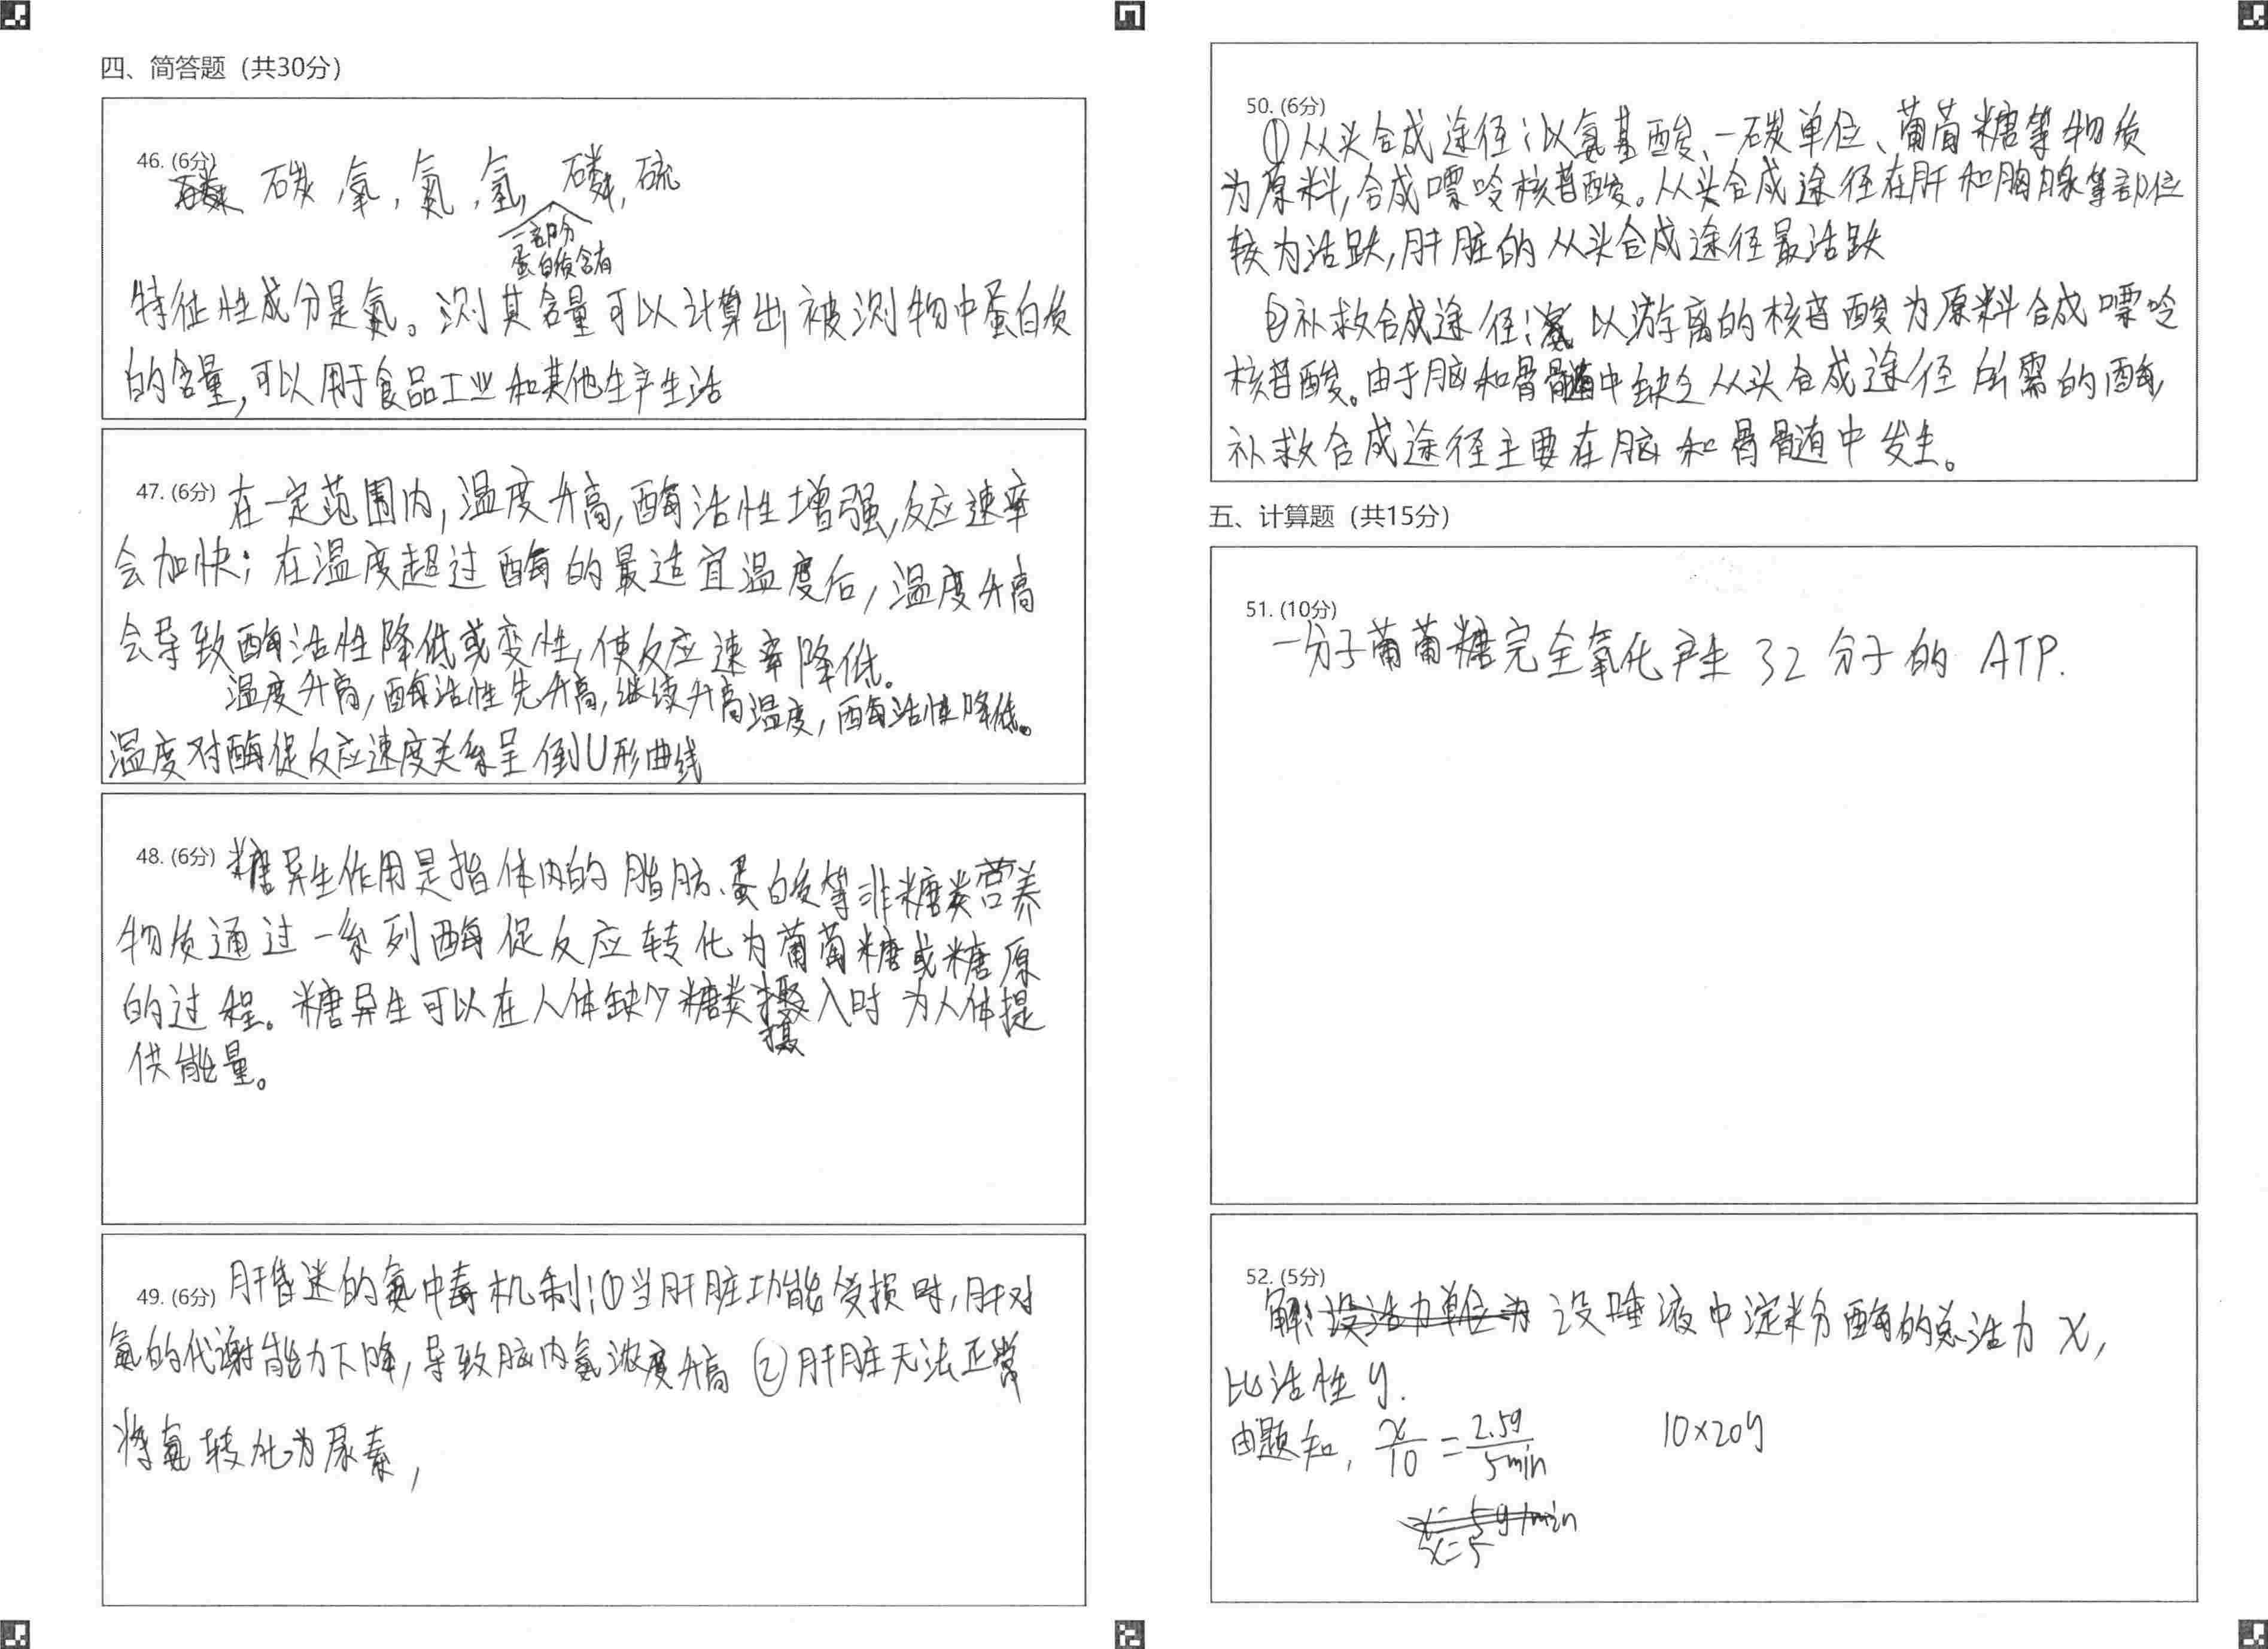 四、简答题（共30分）
46. (6分)
碳，氧，氮，氢，磷，硫
一部分
蛋白质含有
特征性成分是氮。测其含量可以计算出被测物中蛋白质
的含量，可以用于食品工业和其他生产生活
47. (6分) 在一定范围内，温度升高，酶活性增强，反应速率
会加快；在温度超过酶的最适宜温度后，温度升高
会导致酶活性降低或变性，使反应速率降低。
温度升高，酶活性先升高，继续升高温度，酶活性降低。
温度对酶促反应速度关系呈倒U形曲线
48. (6分) 糖异生作用是指体内的脂肪、蛋白质等非糖类营养
物质通过一系列酶促反应转化为葡萄糖或糖原
的过程。糖异生可以在人体缺少糖类摄入时为人体提
摄
供能量。
49. (6分) 肝昏迷的氨中毒机制：①当肝脏功能受损时，肝对
氨的代谢能力下降，导致脑内氨浓度升高 ②肝脏无法正常
将氨转化为尿素，
50. (6分)
①从头合成途径：以氨基酸、一碳单位、葡萄糖等物质
为原料，合成嘌呤核苷酸。从头合成途径在肝和胸腺等部位
较为活跃，肝脏的从头合成途径最活跃
②补救合成途径：以游离的核苷酸为原料合成嘌呤
核苷酸。由于脑和骨髓中缺乏从头合成途径所需的酶，
补救合成途径主要在脑和骨髓中发生。
五、计算题（共15分）
51. (10分)
一分子葡萄糖完全氧化产生 32 分子的 ATP.
52. (5分)
解：设活力单位为 设唾液中淀粉酶的总活力 x，
比活性 y.
由题知， x/10 = 2.5g/5min 10×20y
x= 5g/min
x=5